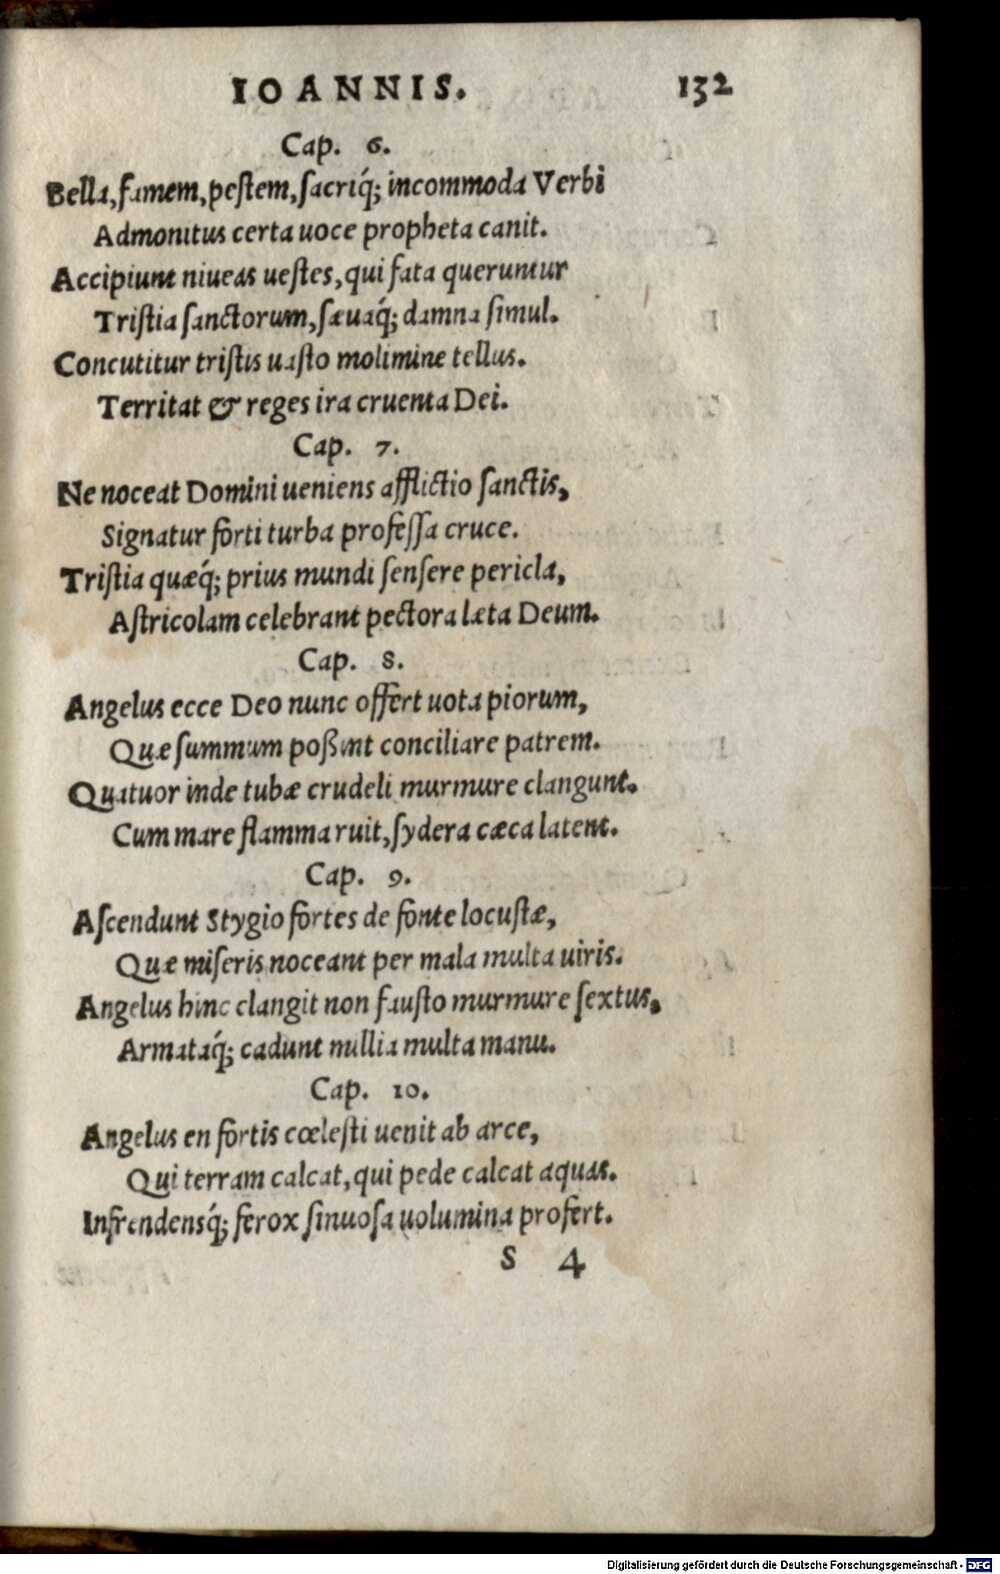 IOANNIS. 132
Cap. 6.
Bella, famem, pestem, sacriq́; incommoda Verbi
Admonitus certa uoce propheta canit.
Accipiunt niueas uestes, qui fata queruntur
Tristia sanctorum, sæuaq́; damna simul.
Concutitur tristis uasto molimine tellus.
Territat & reges ira cruenta Dei.
Cap. 7.
Ne noceat Domini ueniens afflictio sanctis,
Signatur forti turba professa cruce.
Tristia quæq́; prius mundi sensere pericla,
Astricolam celebrant pectora læta Deum.
Cap. 8.
Angelus ecce Deo nunc offert uota piorum,
Quæ summum poßint conciliare patrem.
Quatuor inde tubæ crudeli murmure clangunt.
Cum mare flamma ruit, sydera cæca latent.
Cap. 9.
Ascendunt Stygio fortes de fonte locustæ,
Quæ miseris noceant per mala multa uiris.
Angelus hinc clangit non fausto murmure sextus,
Armataq́; cadunt millia multa manu.
Cap. 10.
Angelus en fortis cœlesti uenit ab arce,
Qui terram calcat, qui pede calcat aquas.
Infrendensq́; ferox sinuosa uolumina profert.
S 4
Digitalisierung gefördert durch die Deutsche Forschungsgemeinschaft - DFG